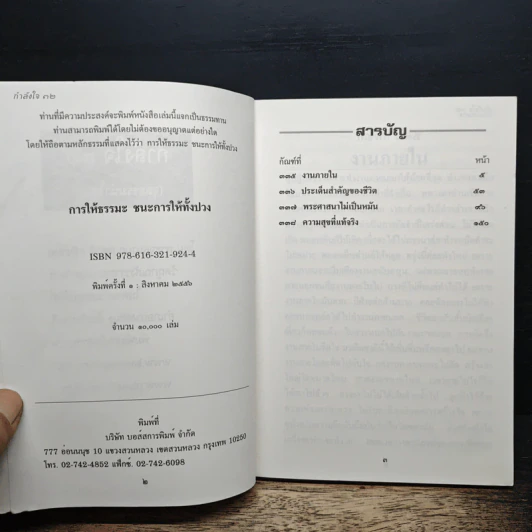 กำลังใจ ๓๒
ท่านที่มีความประสงค์จะพิมพ์หนังสือเล่มนี้แจกเป็นธรรมทาน
ท่านสามารถพิมพ์ได้โดยไม่ต้องขออนุญาตแต่อย่างใด
โดยให้ถือตามหลักธรรมที่แสดงไว้ว่า การให้ธรรมะ ชนะการให้ทั้งปวง
การให้ธรรมะ ชนะการให้ทั้งปวง
ISBN 978-616-321-924-4
พิมพ์ครั้งที่ ๑ : สิงหาคม ๒๕๕๖
จำนวน ๑๐,๐๐๐ เล่ม
พิมพ์ที่
บริษัท บอส์สการพิมพ์ จำกัด
777 อ่อนนนุช 10 แขวงสวนหลวง เขตสวนหลวง กรุงเทพ 10250
โทร. 02-742-4852 แฟ็กซ์. 02-742-6098
๒
สารบัญ
กัณฑ์ที่ หน้า
๓๓๕ งานภายใน ๕
๓๓๖ ประเด็นสำคัญของชีวิต ๕๓
๓๓๗ พระศาสนาไม่เป็นหมัน ๙๖
๓๓๘ ความสุขที่แท้จริง ๑๕๐
๓